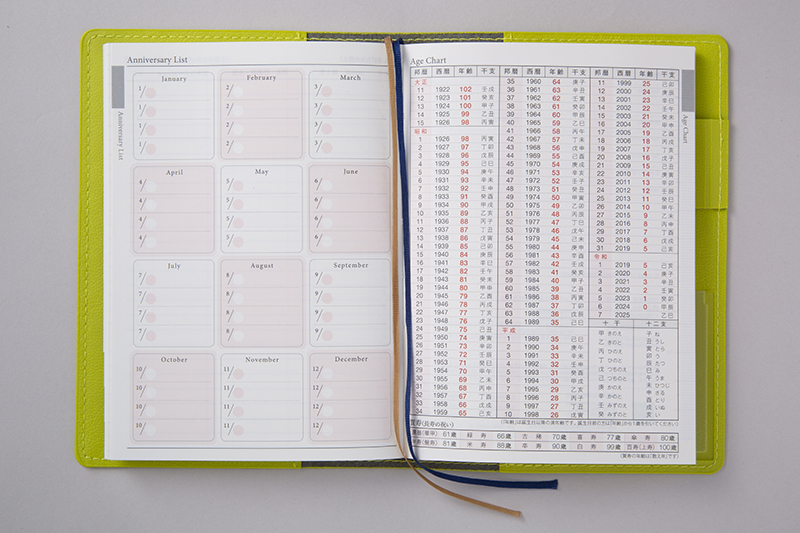 Anniversary List
Anniversary List
January
1/
1/
1/
1/
February
2/
2/
2/
2/
March
3/
3/
3/
3/
April
4/
4/
4/
4/
May
5/
5/
5/
5/
June
6/
6/
6/
6/
July
7/
7/
7/
7/
August
8/
8/
8/
8/
September
9/
9/
9/
9/
October
10/
10/
10/
10/
November
11/
11/
11/
11/
December
12/
12/
12/
12/
Age Chart
Age Chart
邦暦 西暦 年齢 干支
大正
11 1922 102 壬戌
12 1923 101 癸亥
13 1924 100 甲子
14 1925 99 乙丑
15 1926 98 丙寅
昭和
1 1926 98 丙寅
2 1927 97 丁卯
3 1928 96 戊辰
4 1929 95 己巳
5 1930 94 庚午
6 1931 93 辛未
7 1932 92 壬申
8 1933 91 癸酉
9 1934 90 甲戌
10 1935 89 乙亥
11 1936 88 丙子
12 1937 87 丁丑
13 1938 86 戊寅
14 1939 85 己卯
15 1940 84 庚辰
16 1941 83 辛巳
17 1942 82 壬午
18 1943 81 癸未
19 1944 80 甲申
20 1945 79 乙酉
21 1946 78 丙戌
22 1947 77 丁亥
23 1948 76 戊子
24 1949 75 己丑
25 1950 74 庚寅
26 1951 73 辛卯
27 1952 72 壬辰
28 1953 71 癸巳
29 1954 70 甲午
30 1955 69 乙未
31 1956 68 丙申
32 1957 67 丁酉
33 1958 66 戊戌
34 1959 65 己亥
邦暦 西暦 年齢 干支
35 1960 64 庚子
36 1961 63 辛丑
37 1962 62 壬寅
38 1963 61 癸卯
39 1964 60 甲辰
40 1965 59 乙巳
41 1966 58 丙午
42 1967 57 丁未
43 1968 56 戊申
44 1969 55 己酉
45 1970 54 庚戌
46 1971 53 辛亥
47 1972 52 壬子
48 1973 51 癸丑
49 1974 50 甲寅
50 1975 49 乙卯
51 1976 48 丙辰
52 1977 47 丁巳
53 1978 46 戊午
54 1979 45 己未
55 1980 44 庚申
56 1981 43 辛酉
57 1982 42 壬戌
58 1983 41 癸亥
59 1984 40 甲子
60 1985 39 乙丑
61 1986 38 丙寅
62 1987 37 丁卯
63 1988 36 戊辰
64 1989 35 己巳
平成
1 1989 35 己巳
2 1990 34 庚午
3 1991 33 辛未
4 1992 32 壬申
5 1993 31 癸酉
6 1994 30 甲戌
7 1995 29 乙亥
8 1996 28 丙子
9 1997 27 丁丑
10 1998 26 戊寅
邦暦 西暦 年齢 干支
11 1999 25 己卯
12 2000 24 庚辰
13 2001 23 辛巳
14 2002 22 壬午
15 2003 21 癸未
16 2004 20 甲申
17 2005 19 乙酉
18 2006 18 丙戌
19 2007 17 丁亥
20 2008 16 戊子
21 2009 15 己丑
22 2010 14 庚寅
23 2011 13 辛卯
24 2012 12 壬辰
25 2013 11 癸巳
26 2014 10 甲午
27 2015 9 乙未
28 2016 8 丙申
29 2017 7 丁酉
30 2018 6 戊戌
31 2019 5 己亥
令和
1 2019 5 己亥
2 2020 4 庚子
3 2021 3 辛丑
4 2022 2 壬寅
5 2023 1 癸卯
6 2024 0 甲辰
7 2025 乙巳
十干 十二支
甲 きのえ
乙 きのと
丙 ひのえ
丁 ひのと
戊 つちのえ
己 つちのと
庚 かのえ
辛 かのと
壬 みずのえ
癸 みずのと
子 ね
丑 うし
寅 とら
卯 う
辰 たつ
巳 み
午 うま
未 ひつじ
申 さる
酉 とり
戌 いぬ
亥 い
(「年齢」は誕生日以降の満年齢です。誕生日前の方は「年齢」から1歳を引いてください)
賀寿(長寿の祝い)
還暦(華甲) 61歳 緑寿 66歳 古稀 70歳 喜寿 77歳 傘寿 80歳
半寿(盤寿) 81歳 米寿 88歳 卒寿 90歳 白寿 99歳 百寿(上寿) 100歳
(賀寿の年齢は「数え年」です)